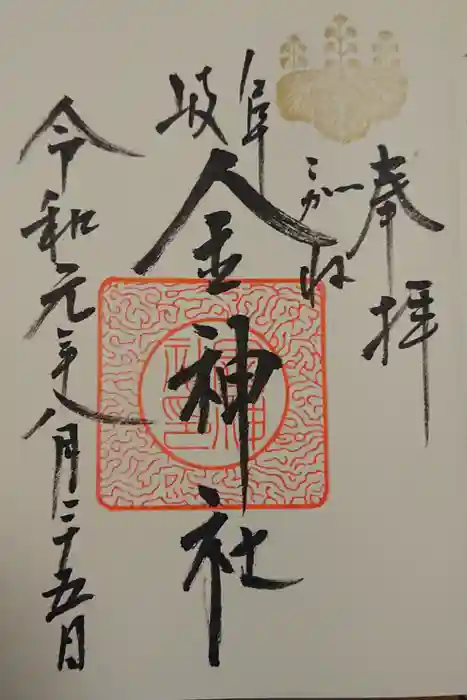 奉拝
こがね
岐阜
金神社
令和元年八月二十五日